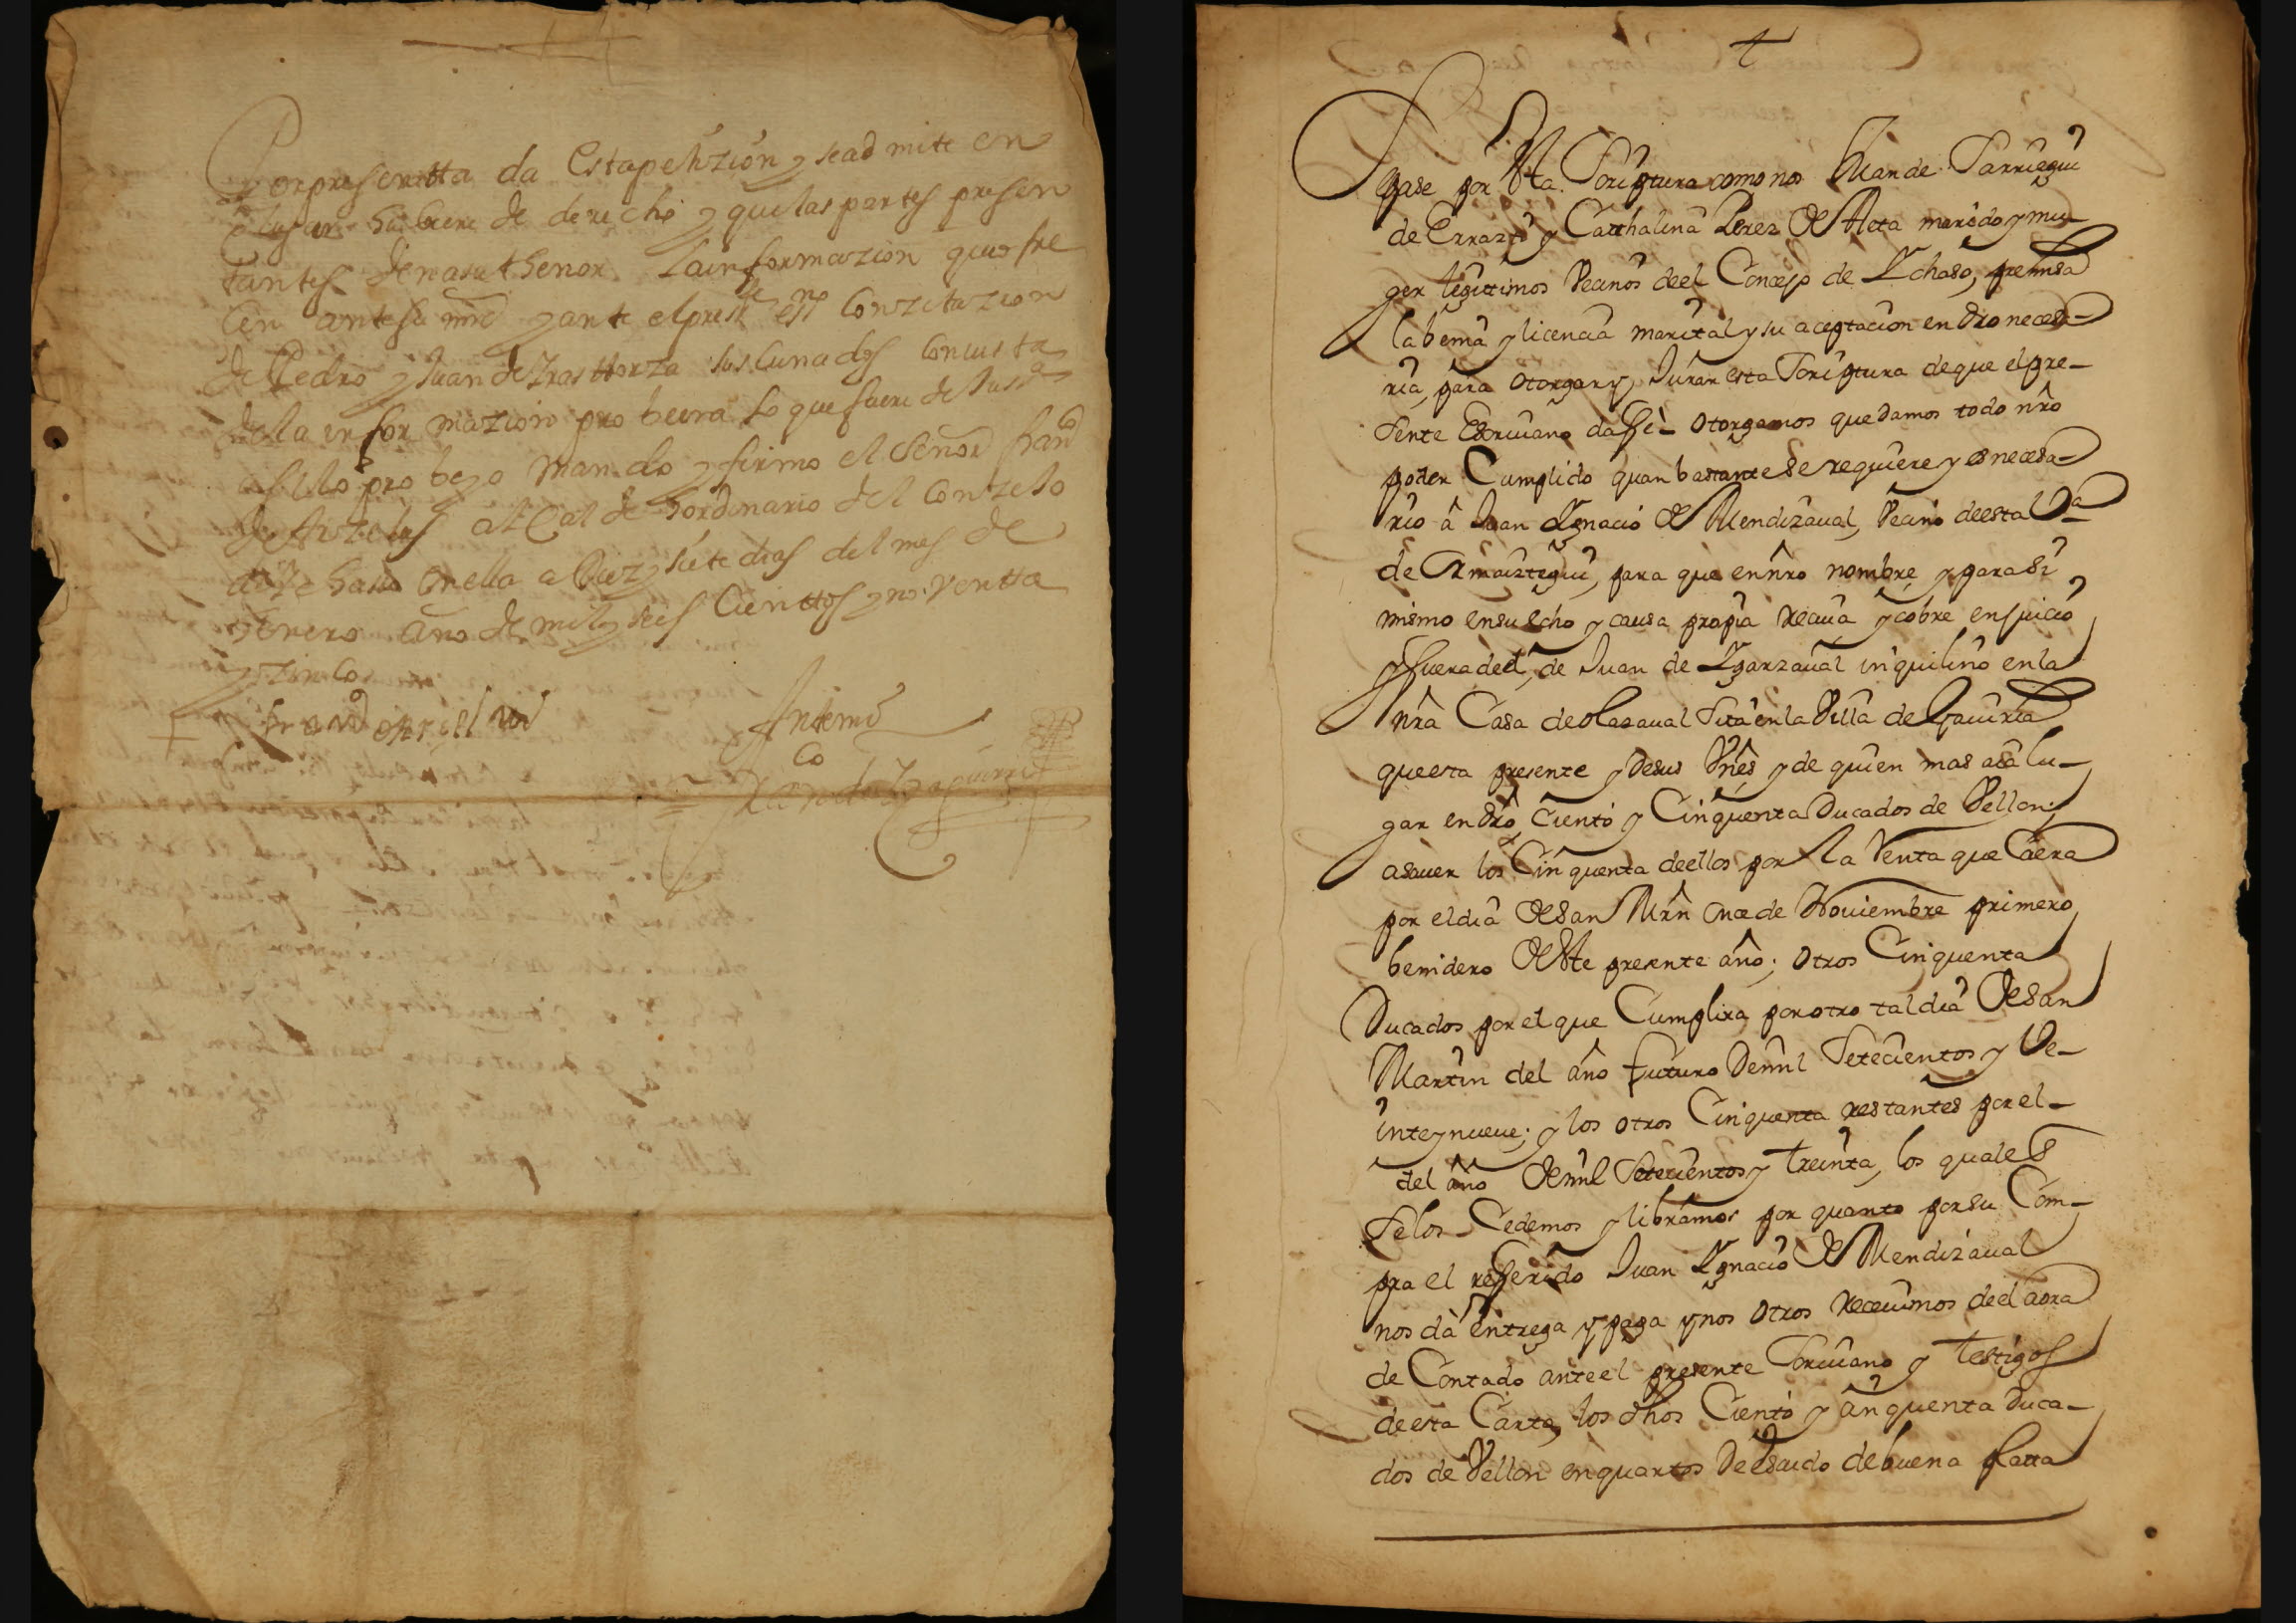 Por presentta da Esta petizion y se ad mite en
lugar hubiere de derecho y que las partes presen
tantes den a su thenor La informazion que ofre
cen ante su mrd y ante el press.te ess.no Con zitazion
de Pedro y Juan de Iras ttorza sus Cunados Con
de la infor mazion pro beera Lo que fuere de Juss.a
assi lo pro beyo Man do y firmo el Señor fran.co
de alCalde hordinario del Conzejo
de en ella a Diez y siete dias del mes de
henero año de mil y seis Cienttos y no ventta
y zinco
Ante mi
+
Sepase por Esta Scriptura como nos Juan de Sarriegui
de Errazti y Catthalina Perez de Aeta marido y mu-
ger legitimos Vecinos de el Concejo de Ychaso, premisa
la benia y licencia marital y su aceptacion en dro necesa-
ria, para otorgar y, Jurar esta Scriptura de que el pre-
sente Escriuano da ffè- otorgamos que damos todo nrô
poder Cumplido quan bastante se requiere y es necesa-
rio â Juan Ygnacio de Mendizaual, Vecino de esta Va
de Ormaiztegui, para que en nrô nombre, y para si
mismo en su echo y causa propia reciua y cobre en juicio
y fuera de el, de Juan de Ygarzaual inquilino en la
nrâ Casa de olazaual Sita en la Villa de Gauiria
que esta presente y de sus Vnês y de quien mas aia lu-
gar en dro Ciento y Cinquenta Ducados de Vellon;
a sauer los Cinquenta de ellos por la Renta que Caera
por el dia de San Mrn once de Nouiembre primero
benidero de Este presente año; otros Cinquenta
Ducados por el que Cumplira por otro tal dia de San
Martin del año futuro de mil Setecientos y Ve-
inte y nueue; y los otros Cinquenta restantes por el-
del año de mil Setecientos y Treinta, los quales
se los Cedemos y libramos por quanto por su Com-
pra el refferido Juan Ygnacio de Mendizaual
nos dà entrega y paga y nos otros receuimos de el aora
de Contado ante el presente Scriuano y Testigos
de esta Carta, los dhos Ciento y cinquenta Duca-
dos de Vellon en quartos de de buena